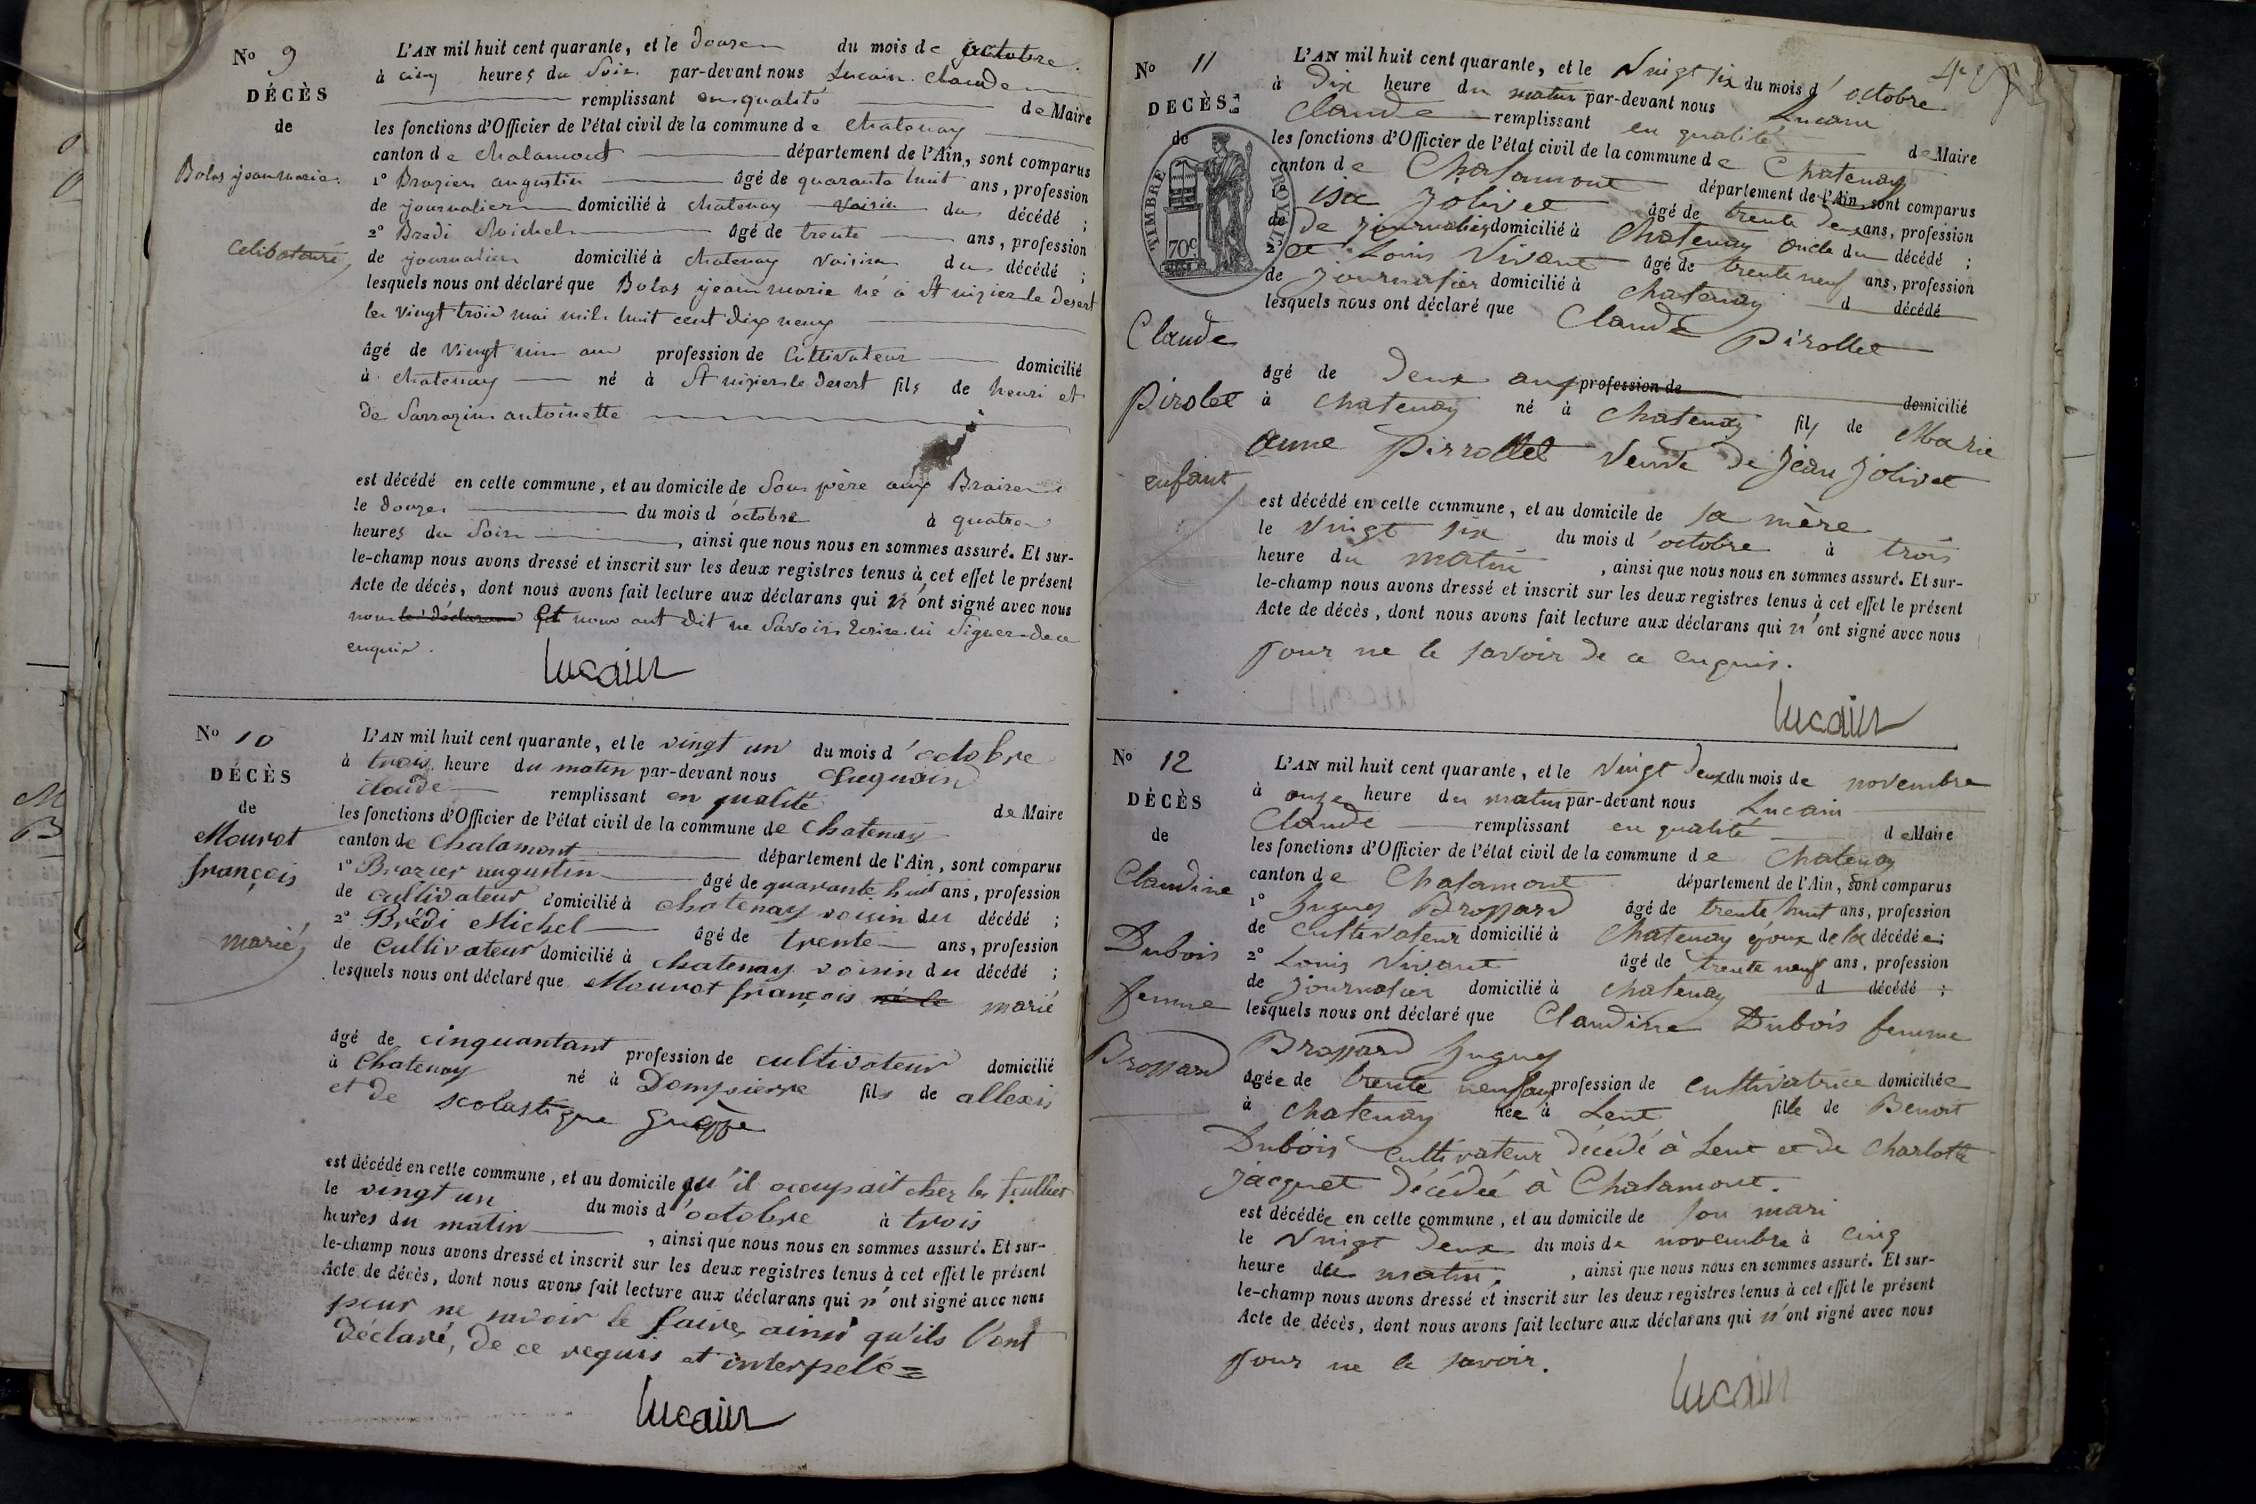 N° 9
DÉCÈS
de
Bolas jean marie
Celibataire
L'AN mil huit cent quarante, et le douze du mois de octobre
à cinq heures du Soir par-devant nous Lucain Claude
remplissant en qualité de Maire
les fonctions d'Officier de l'état civil de la commune de Chatenay
canton de Chalamont département de l'Ain, sont comparus
1° Brazier augustin âgé de quarante huit ans, profession
de journalier domicilié à Chatenay voisin du décédé ;
2° Bredi Michel âgé de trente ans, profession
de journalier domicilié à Chatenay voisin du décédé ;
lesquels nous ont déclaré que Bolas jean marie né à St nizier le Desert
le vingt trois mai mil huit cent dix neuf
âgé de vingt un ans profession de Cultivateur domicilié
à Chatenay né à St nizier le Desert fils de henri et
de Sarrazin antoinette
est décédé en cette commune, et au domicile de Son père aux
le douze du mois d'octobre à quatre
heures du Soir, ainsi que nous nous en sommes assuré. Et sur-
le-champ nous avons dressé et inscrit sur les deux registres tenus à cet effet le présent
Acte de décès, dont nous avons fait lecture aux déclarans qui n'ont signé avec nous
nous ont dit ne Savoir Ecrire ni Signer de ce
enquis.
Lucain
N° 10
DÉCÈS
de
Mourot
françois
marié
L'AN mil huit cent quarante, et le vingt un du mois d'octobre
à trois heure du matin par-devant nous
claude remplissant en qualité de Maire
les fonctions d'Officier de l'état civil de la commune de Chatenay
canton de Chalamont département de l'Ain, sont comparus
1° Brazier augustin âgé de quarante huit ans, profession
de cultivateur domicilié à chatenay voisin du décédé ;
2° Brédi Michel âgé de trente ans, profession
de Cultivateur domicilié à chatenay voisin du décédé ;
lesquels nous ont déclaré que Mourot françois né le marié
âgé de cinquantant profession de cultivateur domicilié
à Chatenay né à Dompierre fils de allexis
et de scolastique
est décédé en cette commune, et au domicile qu'il occupait chez les
le vingt un du mois d'octobre à trois
heures du matin, ainsi que nous nous en sommes assuré. Et sur-
le-champ nous avons dressé et inscrit sur les deux registres tenus à cet effet le présent
Acte de décès, dont nous avons fait lecture aux déclarans qui n'ont signé avec nous
pour ne savoir le faire, ainsi qu'ils l'ont
déclaré, de ce requis et interpelé =
Lucain
N° 11
DECÈS
de
TIMBRE ROYAL
70c
Claude
Pirolet
enfant
L'AN mil huit cent quarante, et le Vingt six du mois d'octobre
à dix heure du matin par-devant nous Lucain
Claude remplissant en qualité de Maire
les fonctions d'Officier de l'état civil de la commune de Chatenay
canton de Chalamont département de l'Ain, sont comparus
1° Jolivet âgé de trente deux ans, profession
de journalier domicilié à Chatenay oncle du décédé ;
2° et Louis Vivant âgé de trente neuf ans, profession
de journalier domicilié à Chatenay d décédé
lesquels nous ont déclaré que Claude Pirollet
âgé de deux ans profession de domicilié
à Chatenay né à Chatenay fils de Marie
anne Pirrollet Veuve de Jean Jolivet
est décédé en cette commune, et au domicile de sa mère
le vingt six du mois d'octobre à trois
heure du matin, ainsi que nous nous en sommes assuré. Et sur-
le-champ nous avons dressé et inscrit sur les deux registres tenus à cet effet le présent
Acte de décès, dont nous avons fait lecture aux déclarans qui n'ont signé avec nous
pour ne le savoir de ce enquis.
Lucain
N° 12
DÉCÈS
de
Claudine
Dubois
femme
Brossard
L'AN mil huit cent quarante, et le Vingt deux du mois de novembre
à onze heure du matin par-devant nous Lucain
Claude remplissant en qualité de Maire
les fonctions d'Officier de l'état civil de la commune de Chatenay
canton de Chalamont département de l'Ain, sont comparus
1° Hugues Brossard âgé de trente huit ans, profession
de Cultivateur domicilié à Chatenay époux de la décédée ;
2° Louis Vivant âgé de trente neuf ans, profession
de journalier domicilié à Chatenay d décédé ;
lesquels nous ont déclaré que Claudine Dubois femme
Brossard Hugues
âgée de trente neuf ans profession de cultivatrice domiciliée
à Chatenay née à Lent fille de Benoit
Dubois Cultivateur décédé à Lent et de Charlotte
jacquet décédée à Chalamont.
est décédée en cette commune, et au domicile de son mari
le Vingt deux du mois de novembre à cinq
heure du matin, ainsi que nous nous en sommes assuré. Et sur-
le-champ nous avons dressé et inscrit sur les deux registres tenus à cet effet le présent
Acte de décès, dont nous avons fait lecture aux déclarans qui n'ont signé avec nous
pour ne le savoir.
Lucain